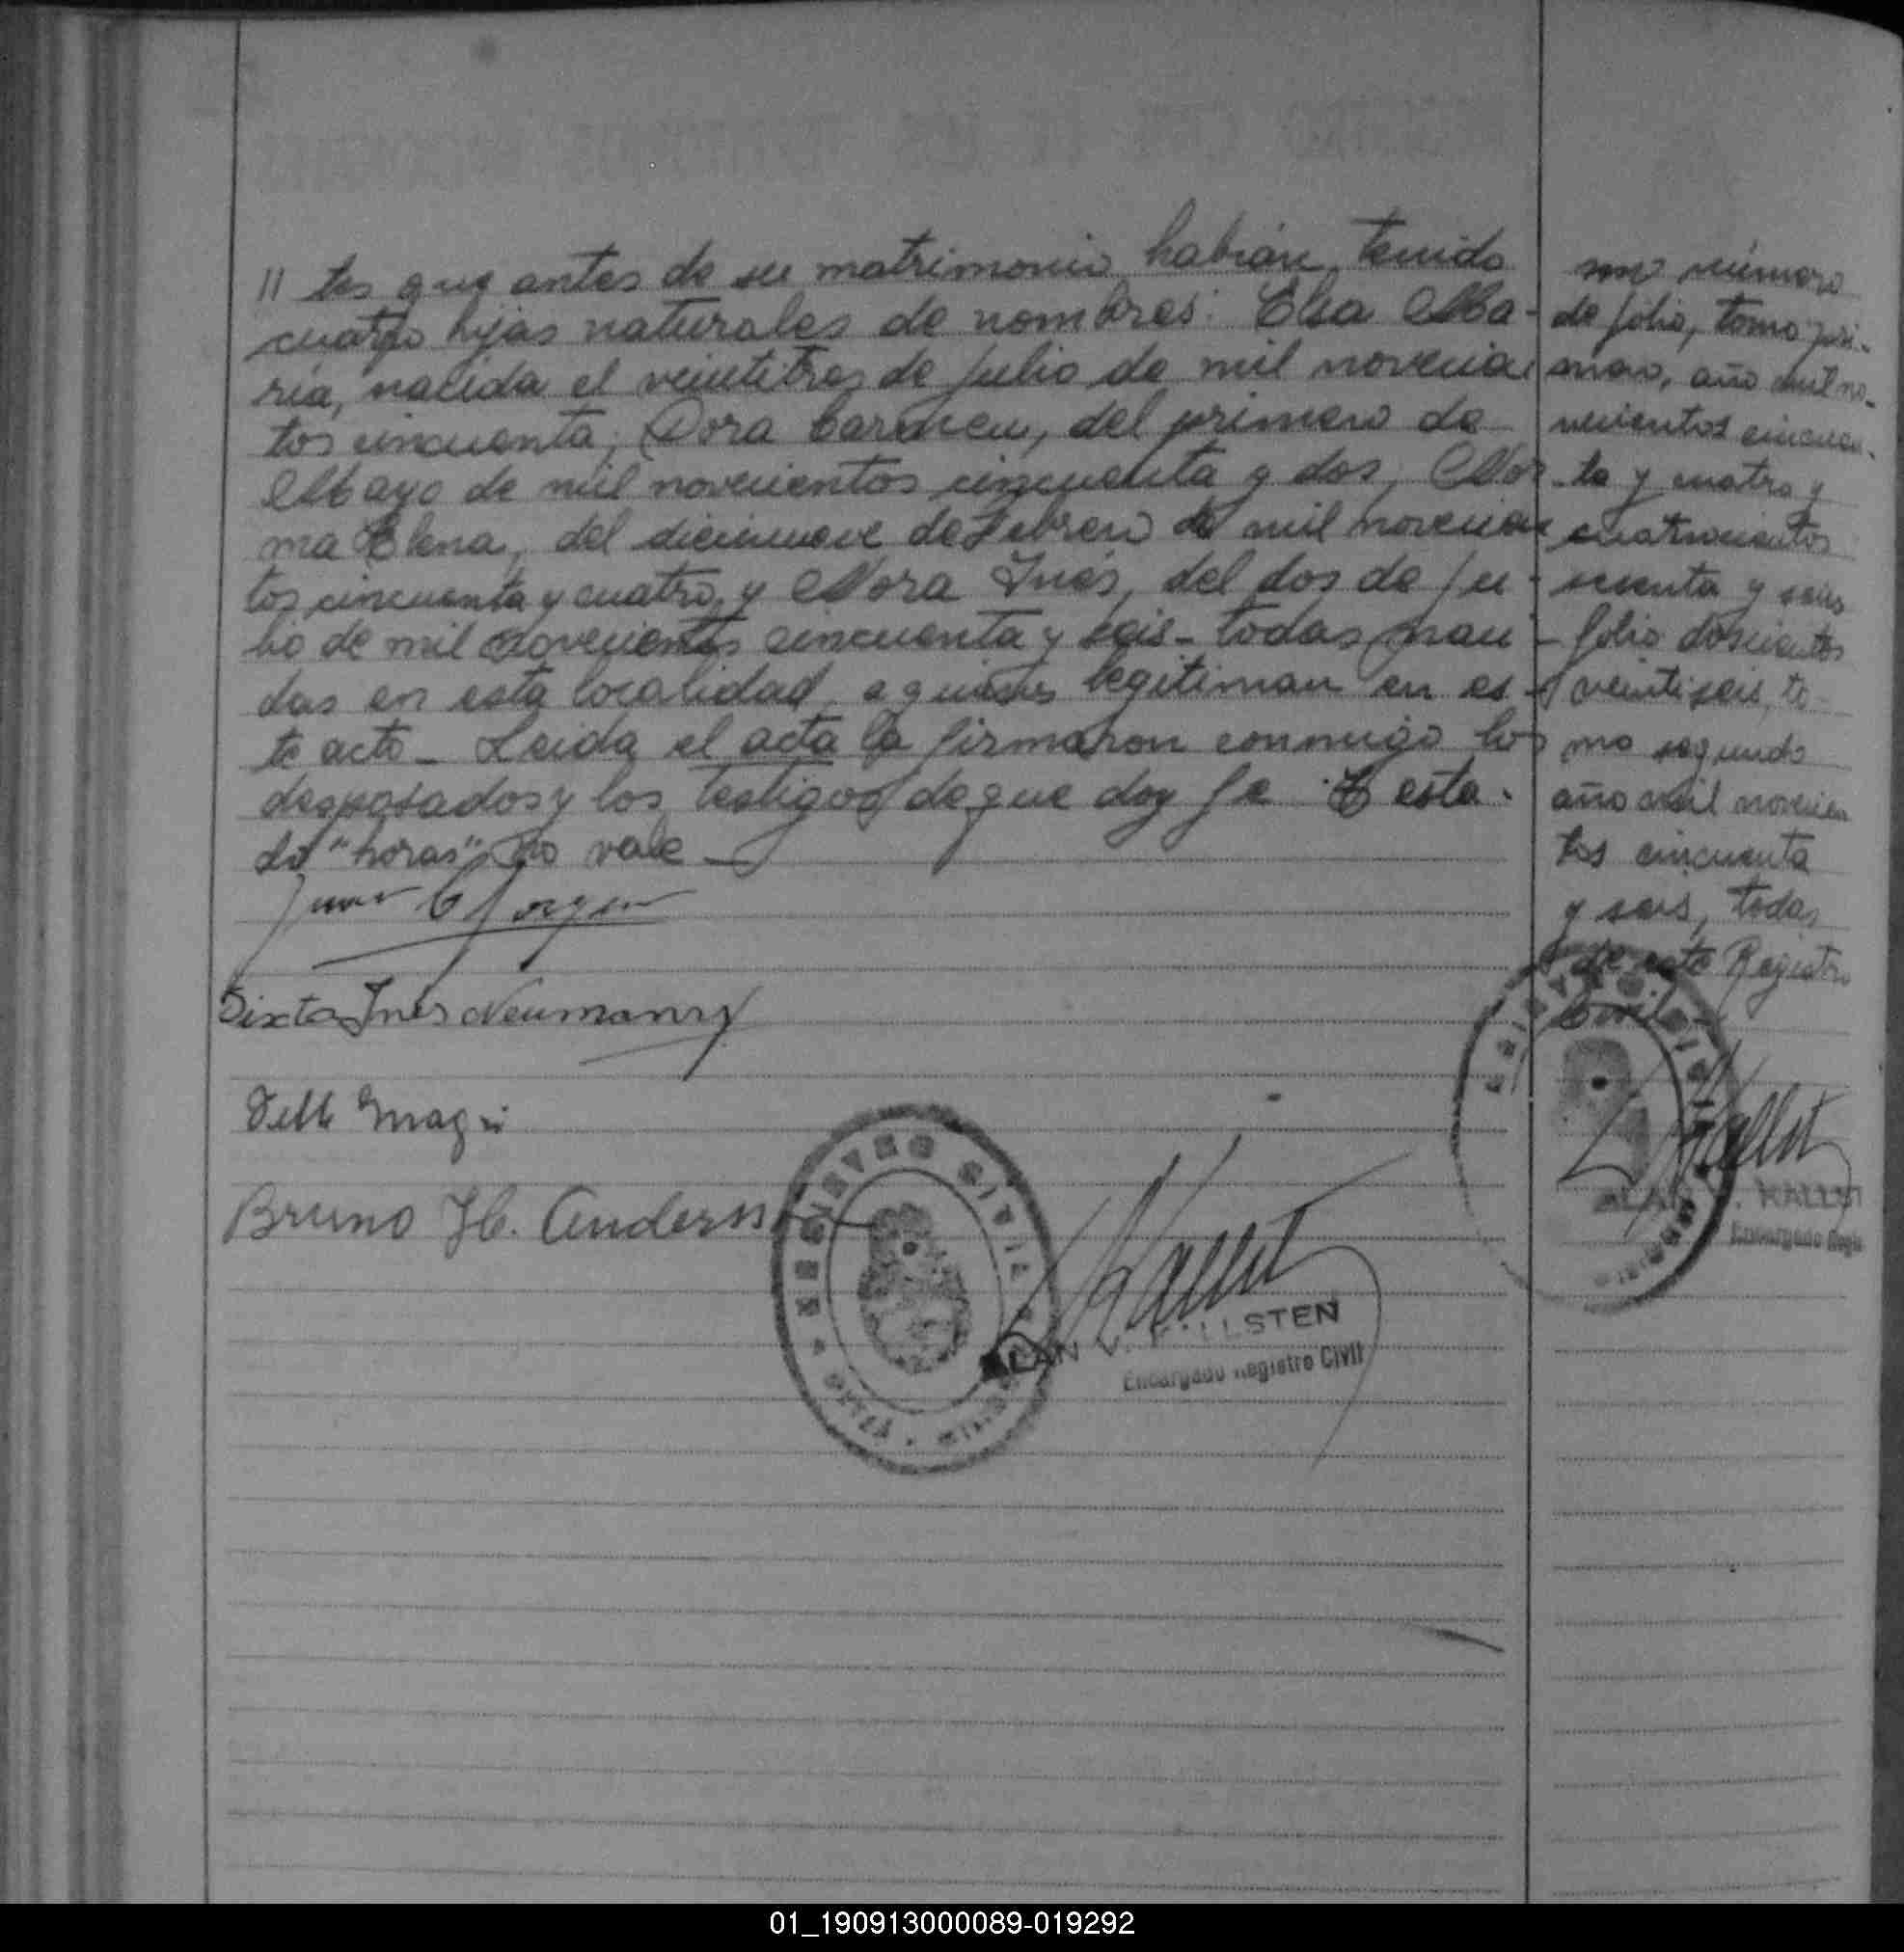 // tes que antes de su matrimonio habían tenido
cuatro hijas naturales de nombres: Elsa Ma-
ría, nacida el veintitres de Julio de mil novecien
tos cincuenta; Dora Carmen, del primero de
Mayo de mil novecientos cincuenta y dos; Nor
ma Elena, del diecinueve de Febrero de mil novecien
tos cincuenta y cuatro, y Nora Inés, del dos de Ju-
lio de mil novecientos cincuenta y seis - todas naci-
das en esta localidad, a quienes legitiman en es-
te acto - Leida el acta la firmaron conmigo los
desposados y los testigos de que doy fe
do "horas" no vale -
Sixta Inés Neumann
Bruno H. Anderss
REGISTRO CIVIL
ALAN V. KALLSTEN
Encargado Registro Civil
mo número
de folio, tomo pri-
mero, año mil no-
vecientos cincuen-
ta y cuatro y
cuatrocientos
sesenta y seis
folio doscientos
veintiseis, to-
mo segundo
año mil novecien
tos cincuenta
y seis, todas
de este Registro
Civil -
REGISTRO CIVIL
ALAN V. KALLST
Encargado Regis
01_190913000089-019292